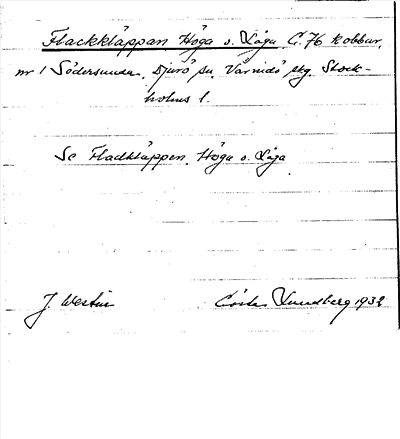 Flackkläppan Höga o. Låga. C. 76 kobbar,
nr 1 Södersunda, Djurö sn. Värmdö skg. Stock-
holms l.
Se Fladkläppen, Höga o. Låga
J. Westin Gösta Lundberg 1932